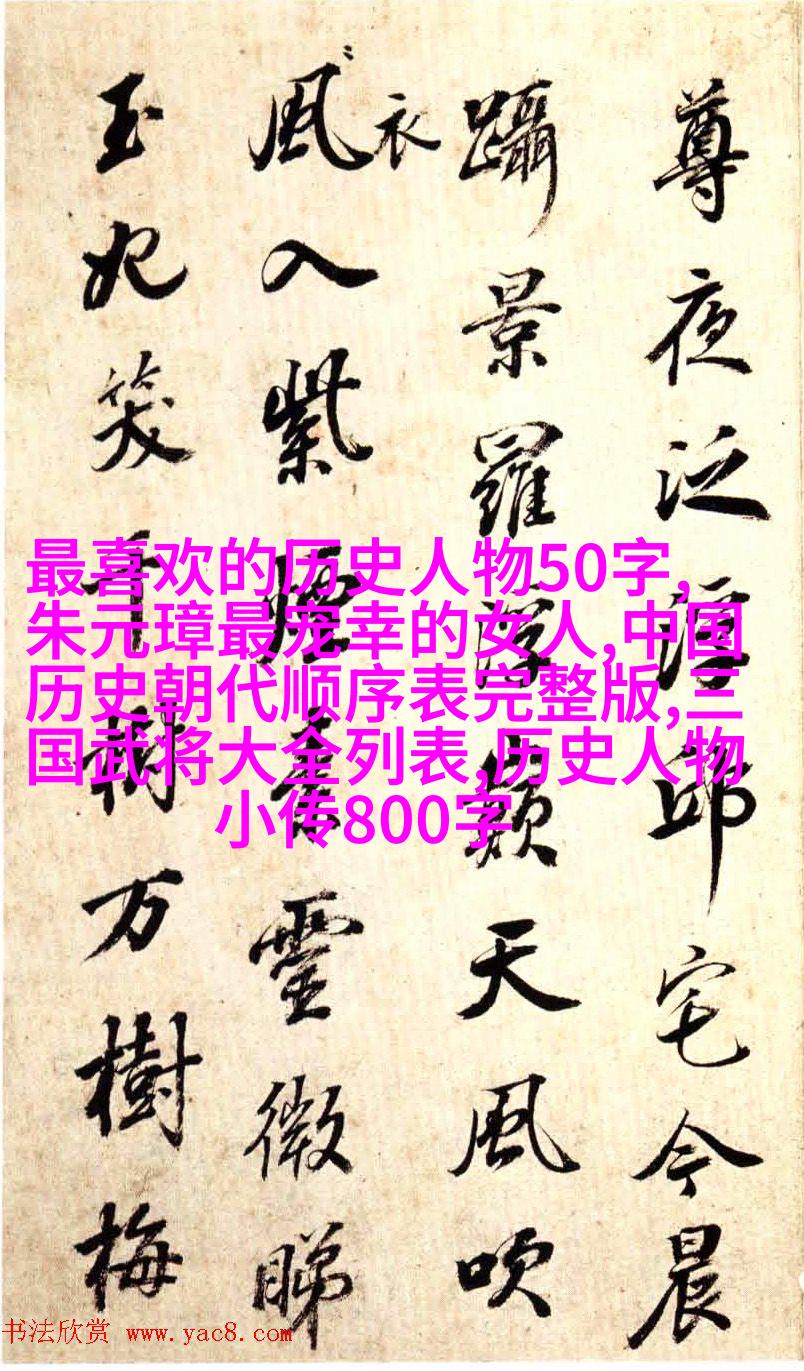 尊夜泛邱宅今晨
躡景羅巔天風吹
風衣入紫煙素靈微睇
玉妃笑千樹万樹梅
最喜欢的历史人物50字,
朱元璋最宠幸的女人,中国
历史朝代顺序表完整版,三
国武将大全列表,历史人物
小传800字
书法欣赏 www.yac8.com